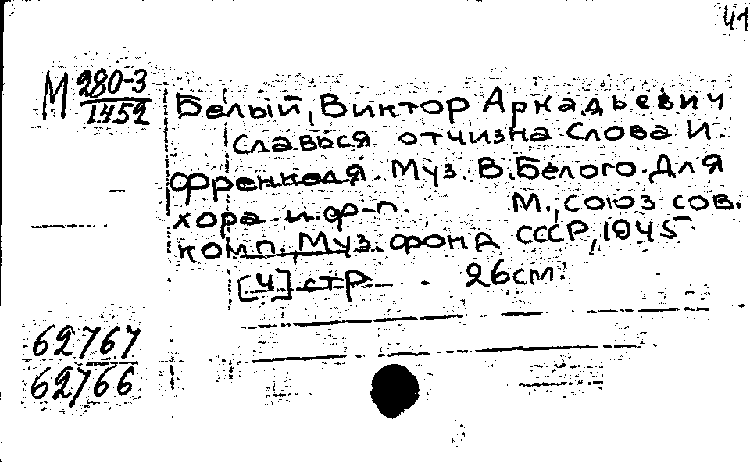 41
М 280-3
1452
Белый, Виктор Аркадьевич
Славься отчизна Слова И.
Френкеля. Муз. В. Белого. Для
хора и ф-п. М., Союз сов.
комп., Муз. фонд СССР, 1945
[4] стр. 26 см.
62767
62766